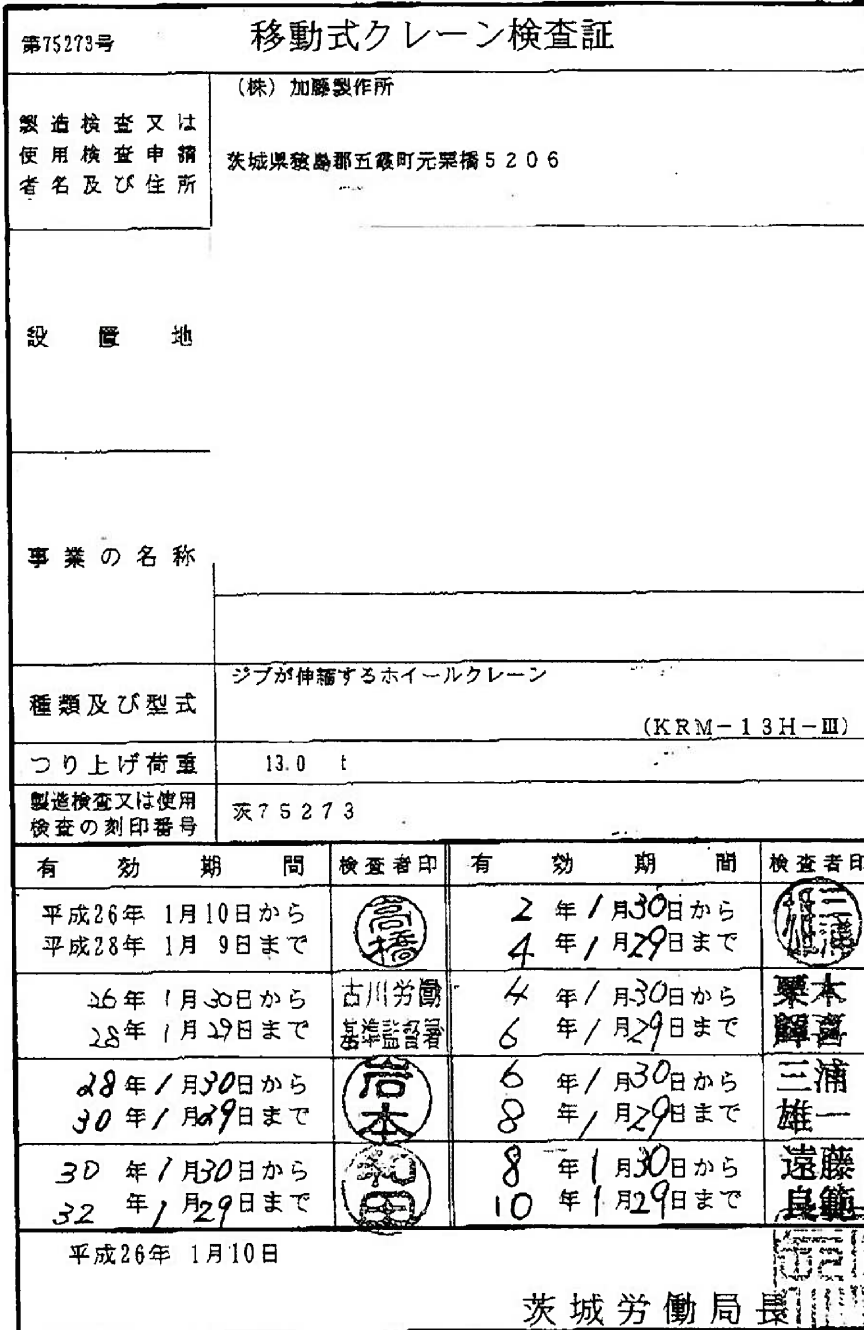 第75273号
移動式クレーン検査証
製造検査又は
使用検査申請
者名及び住所
(株) 加藤製作所
茨城県猿島郡五霞町元栗橋5206
設置地
事業の名称
種類及び型式
ジブが伸縮するホイールクレーン
(KRM-13H-Ⅲ)
つり上げ荷重
13.0 t
製造検査又は使用
検査の刻印番号
茨75273
有効期間 検査者印 有効期間 検査者印
平成26年 1月10日から
平成28年 1月 9日まで
高橋
26年1月30日から
28年1月29日まで
古川労働
基準監督署
28年1月30日から
30年1月29日まで
岩本
30年1月30日から
32年1月29日まで
和田
2年1月30日から
4年1月29日まで
三浦
4年1月30日から
6年1月29日まで
栗本
6年1月30日から
8年1月29日まで
三浦
雄一
8年1月30日から
10年1月29日まで
遠藤
良範
平成26年 1月10日
茨城労働局長